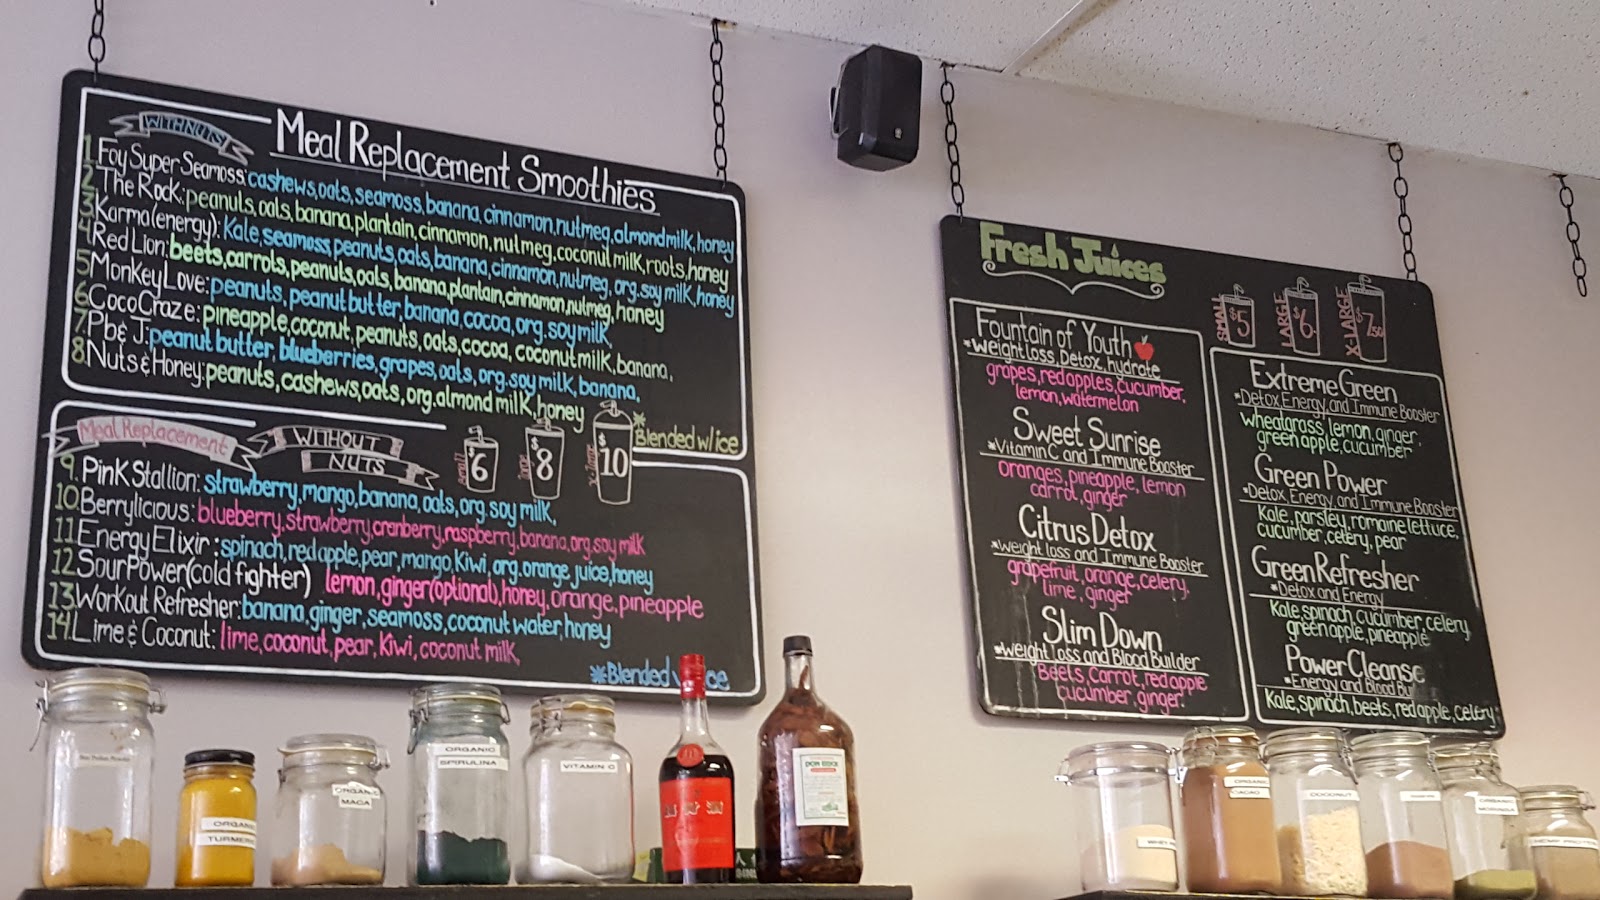 WITH NUTS
Meal Replacement Smoothies
1. Foy Super Seamoss: cashews, oats, seamoss, banana, cinnamon, nutmeg, almond milk, honey
2. The Rock: peanuts, oats, banana, plantain, cinnamon, nutmeg, coconut milk, roots, honey
3. Karma (energy): Kale, seamoss, peanuts, oats, banana, cinnamon, nutmeg, org. soy milk, honey
4. Red Lion: beets, carrots, peanuts, oats, banana, plantain, cinnamon, nutmeg, honey
5. Monkey Love: peanuts, peanut butter, banana, cocoa, org. soy milk,
6. Coco Craze: pineapple, coconut, peanuts, oats, cocoa, coconut milk, banana,
7. Pb & J: peanut butter, blueberries, grapes, oats, org. soy milk, banana,
8. Nuts & Honey: peanuts, cashews, oats, org. almond milk, honey
*Blended w/ ice
Meal Replacement WITHOUT NUTS
Small $6 Large $8 X-Large $10
9. Pink Stallion: strawberry, mango, banana, oats, org. soy milk,
10. Berrylicious: blueberry, strawberry, cranberry, raspberry, banana, org. soy milk
11. Energy Elixir: spinach, red apple, pear, mango, Kiwi, org. orange juice, honey
12. Sour Power (cold fighter) lemon, ginger (optional), honey, orange, pineapple
13. Workout Refresher: banana, ginger, seamoss, coconut water, honey
14. Lime & Coconut: lime, coconut, pear, Kiwi, coconut milk,
*Blended w/ ice
Fresh Juices
SMALL $5 LARGE $6. X-LARGE $7.50
Fountain of Youth
*Weight loss, Detox, hydrate
grapes, red apples, cucumber,
lemon, watermelon
Sweet Sunrise
*Vitamin C and Immune Booster
oranges, pineapple, lemon
carrot, ginger
Citrus Detox
*Weight loss and Immune Booster
grapefruit, orange, celery,
lime, ginger
Slim Down
*Weight Loss and Blood Builder
Beets, carrot, red apple
cucumber, ginger.
Extreme Green
*Detox Energy and Immune Booster
wheatgrass, lemon, ginger,
green apple, cucumber
Green Power
*Detox, Energy, and Immune Booster
Kale, parsley, romaine lettuce,
cucumber, celery, pear
Green Refresher
*Detox and Energy
Kale, spinach, cucumber, celery,
green apple, pineapple
Power Cleanse
*Energy and Blood Bu
Kale, spinach, beets, red apple, celery
ORGANIC
TURMERIC
ORGANIC
MACA
ORGANIC
SPIRULINA
VITAMIN C
WHEY
ORGANIC
CACAO
COCONUT
ORGANIC
MORINGA
HEMP PROTEIN